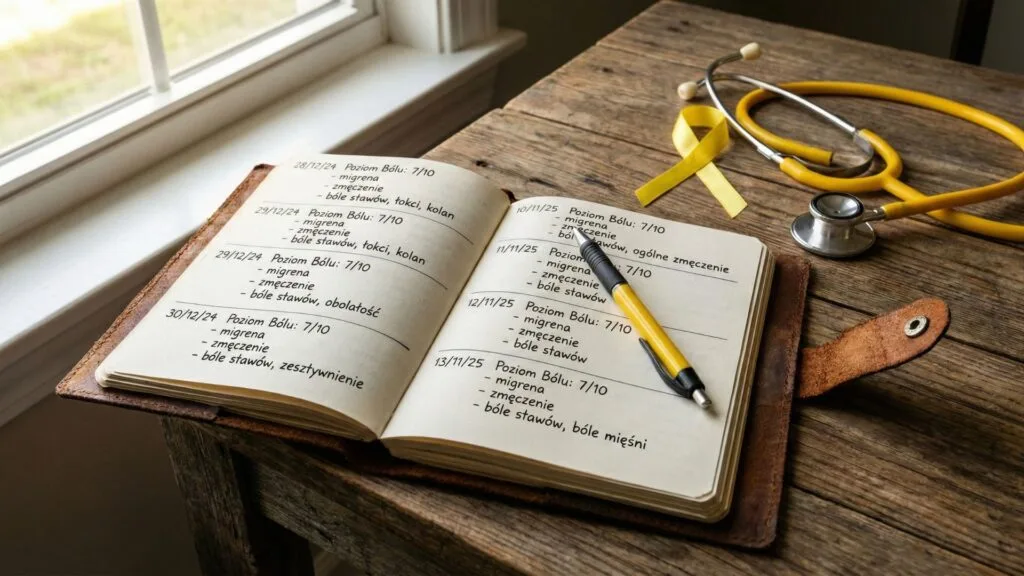 28/12/24 Poziom Bólu: 7/10
- migrena
- zmęczenie
- bóle stawów, tokci, kolan
29/12/24 Poziom Bólu: 7/10
- migrena
- zmęczenie
- bóle stawów, tokci, kolan
29/12/24 Poziom Bólu: 7/10
- migrena
- zmęczenie
- bóle stawów, obolałość
30/12/24 Poziom Bólu: 7/10
- migrena
- zmęczenie
- bóle stawów, zesztywnienie
10/11/25 Poziom Bólu: 7/10
- migrena
- zmęczenie
- bóle stawów, ogólne zmęczenie
11/11/25 Poziom Bólu: 7/10
- migrena
- zmęczenie
- bóle stawów
12/11/25 Poziom Bólu: 7/10
- migrena
- zmęczenie
- bóle stawów
13/11/25 Poziom Bólu: 7/10
- migrena
- zmęczenie
- bóle stawów, bóle mięśni